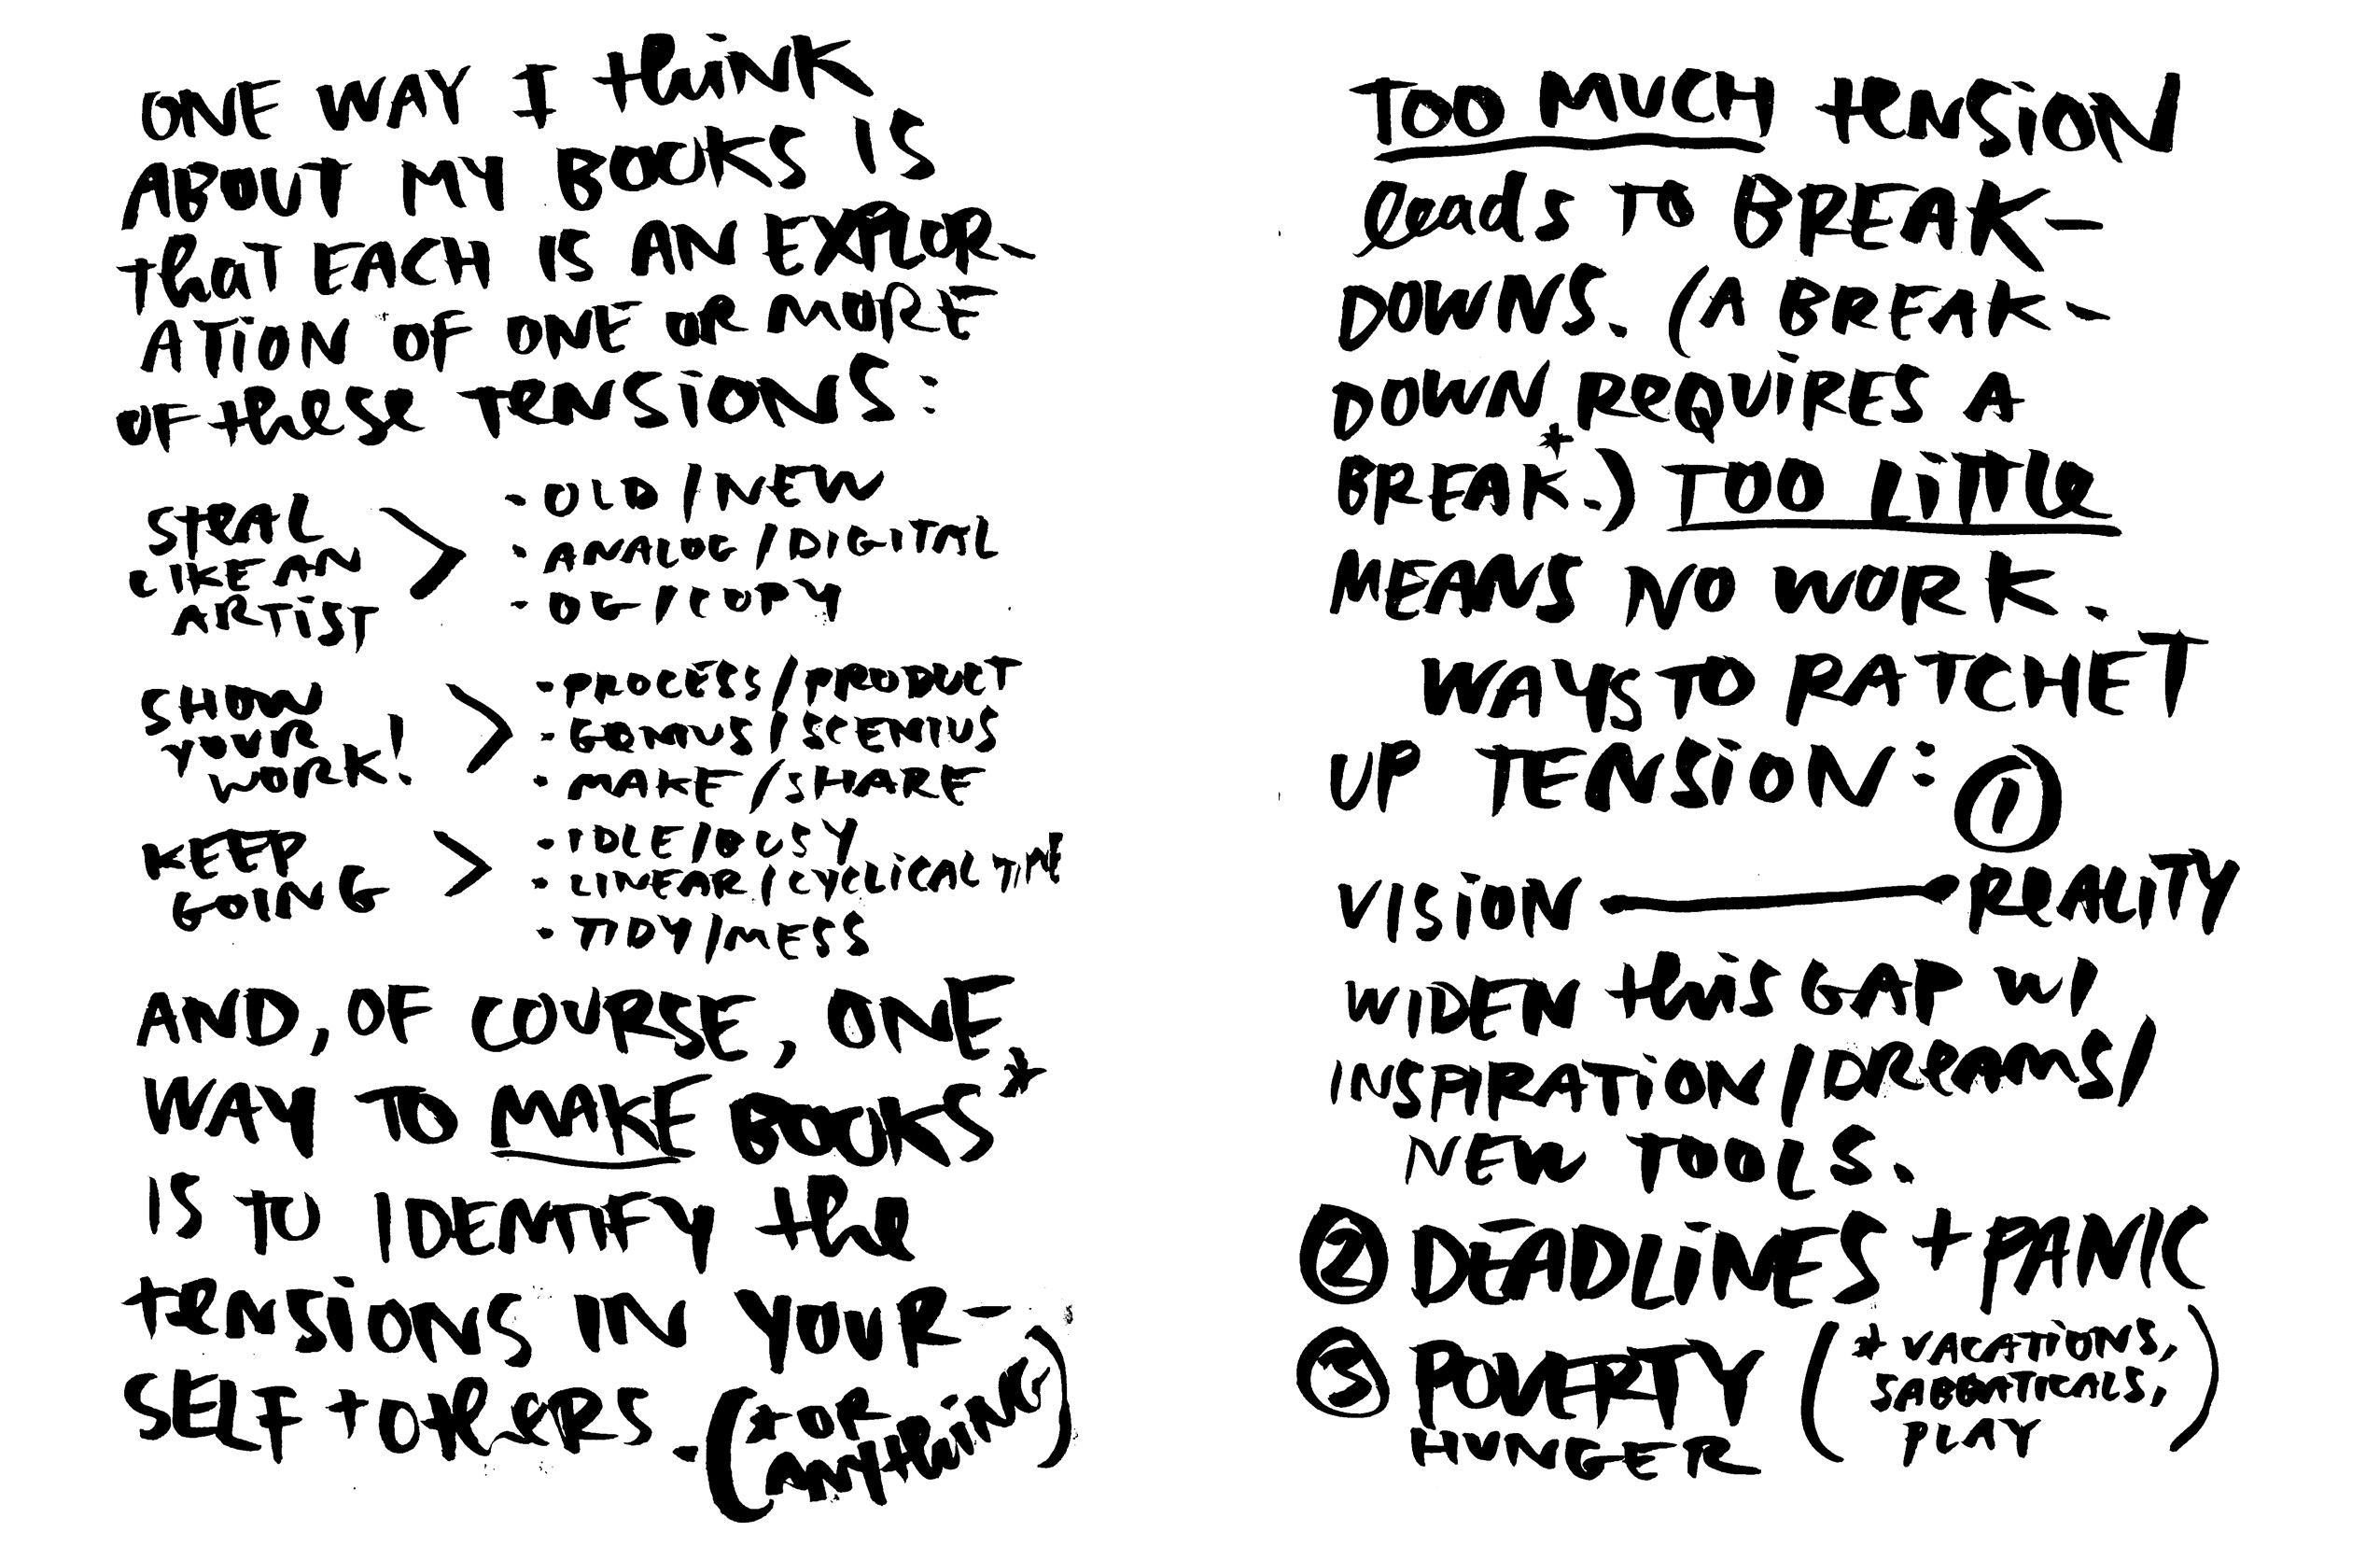 ONE WAY I think
ABOUT MY BOOKS IS
that EACH IS AN EXPLOR-
ATION OF ONE OR MORE
OF these TENSIONS:
STEAL
LIKE AN
ARTIST
>
· OLD/NEW
· ANALOG/DIGITAL
· OG/COPY
SHOW
YOUR
WORK!
>
· PROCESS/PRODUCT
· GENIUS/SCENIUS
· MAKE/SHARE
KEEP
GOING
>
· IDLE/BUSY
· LINEAR/CYCLICAL TIME
· TIDY/MESS
AND, OF COURSE, ONE
WAY TO MAKE BOOKS*
IS TO IDENTIFY the
tENSIONS IN YOUR-
SELF + OtheRS. (* OR
ANYthiNG)
TOO MUCH tENSION
leads TO BREAK-
DOWNS. (A BREAK-
DOWN REQUIRES A
BREAK*.) TOO LITTLE
MEANS NO WORK.
WAYS TO RATCHET
UP TENSION: ①
VISION — REALITY
WIDEN this GAP W/
INSPIRATION/DREAMS/
NEW TOOLS.
② DEADLINES + PANIC
③ POVERTY
HUNGER
(* VACATIONS,
SABBATICALS,
PLAY)